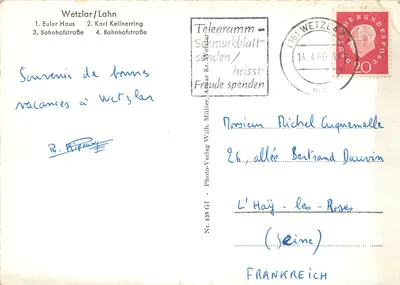 Wetzlar/Lahn
1. Euler Haus 2. Karl Kellnerring
3. Bahnhofstraße 4. Bahnhofstraße
Souvenir de bonnes
vacances à Wetzlar
Telegramm-
Schmuckblatt-
senden/
heisst
Freude spenden
(16) WETZLAR
DEUTSCHE BUNDESPOST
20
Nr. 639 Gf · Photo-Verlag Wilh. Müller,
Monsieur Michel Cuquemelle
26, allée Bertrand Dauvin
L'Haÿ-les-Roses
(Seine)
FRANKREICH